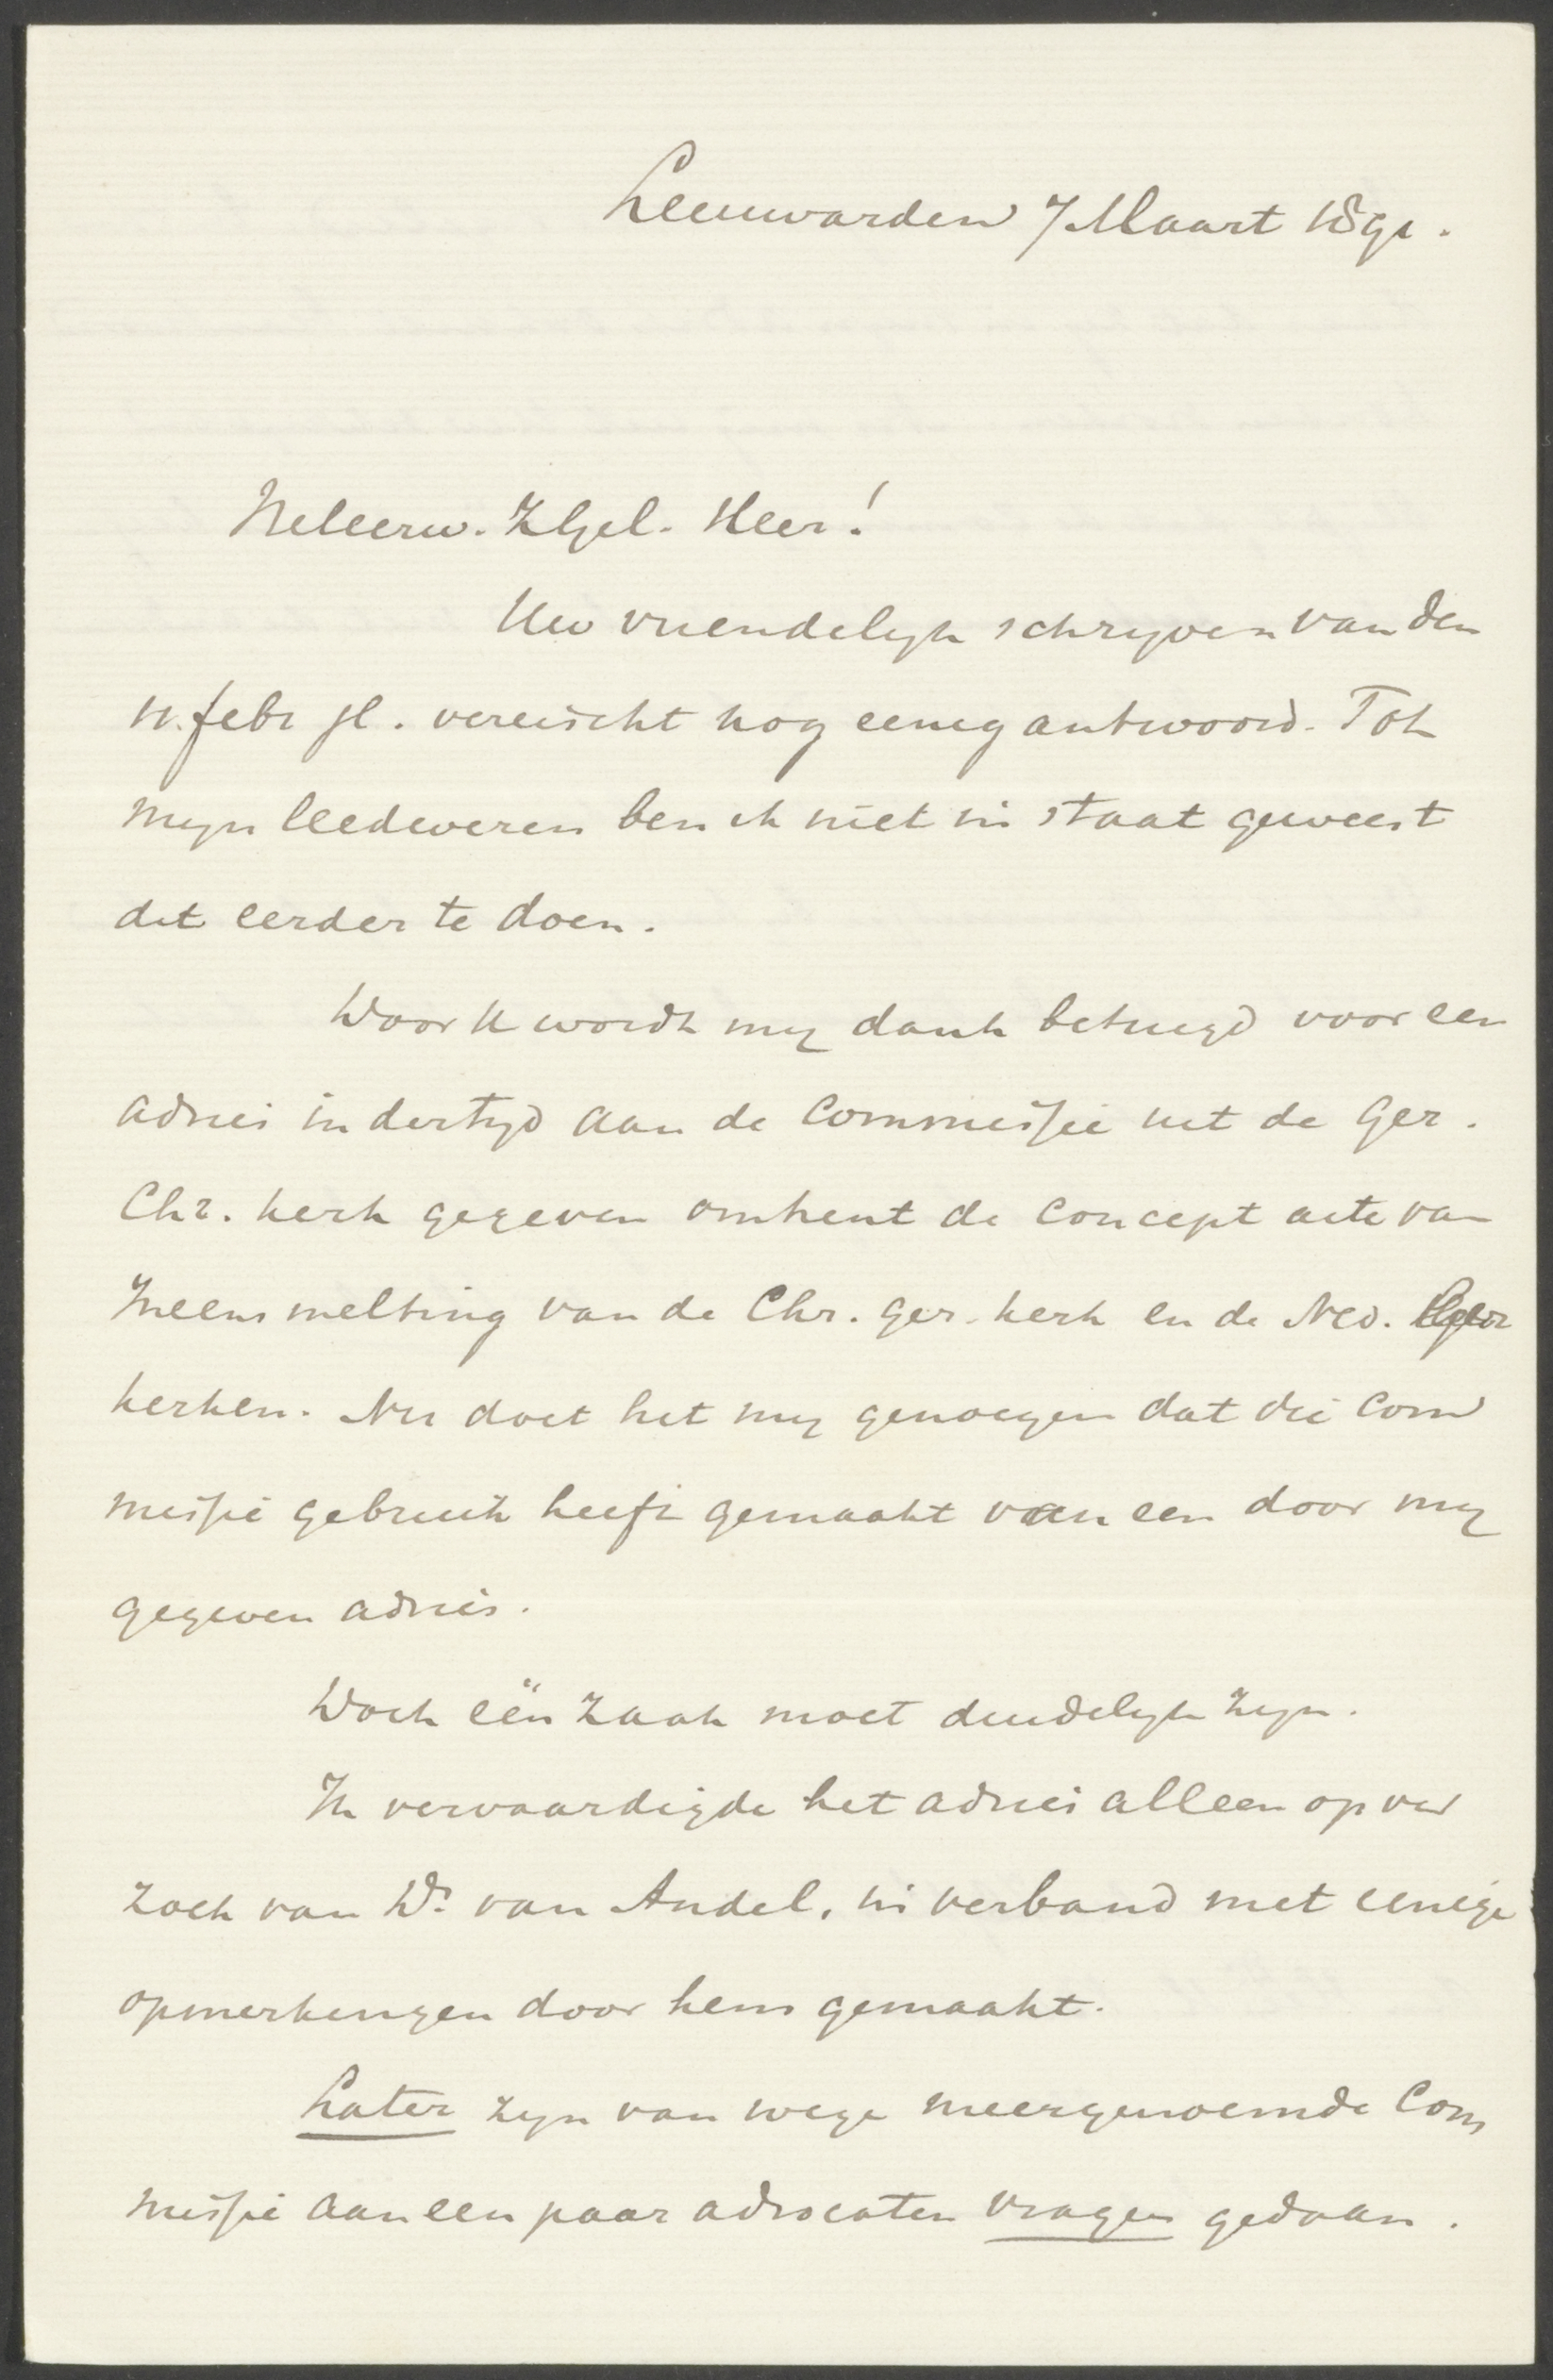 Leeuwarden 7 Maart 1891.
WelEerw. ZGel. Heer!
Uw vriendelijk schrijven van den
11. febr jl. vereischt nog eenig antwoord. Tot
mijn leedwezen ben ik niet in staat geweest
dit eerder te doen.
Door U wordt mij dank betuigd voor een
advies indertijd aan de Commissie uit de Ger.
Chr. kerk gegeven omtrent de Concept acte van
Ineensmelting van de Chr. Ger. kerk en de Ned. Ger
kerken. Nu doet het mij genoegen dat die Com
missie gebruik heeft gemaakt van een door mij
gegeven advies.
Doch één zaak moet duidelijk zijn.
Ik vervaardigde het advies alleen op ver
zoek van Ds. van Andel, in verband met eenige
opmerkingen door hem gemaakt.
Later zijn van wege meergenoemde Com
missie aan een paar advocaten vragen gedaan.